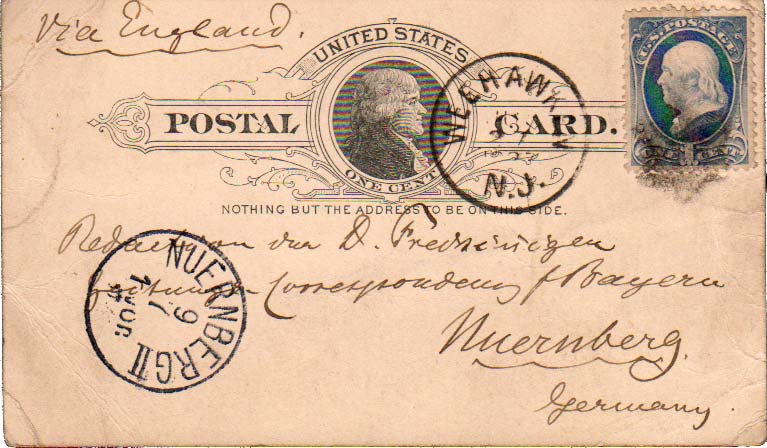 Via England.
UNITED STATES
POSTAL CARD.
ONE CENT
U.S. POSTAGE
ONE CENT
WEEHAWKEN
N.J.
NOTHING BUT THE ADDRESS TO BE ON THIS SIDE.
Redaktion der D.
Correspondenz f Bayern
Nuernberg.
Germany.
NUERNBERG II
9
7
1 VOR.